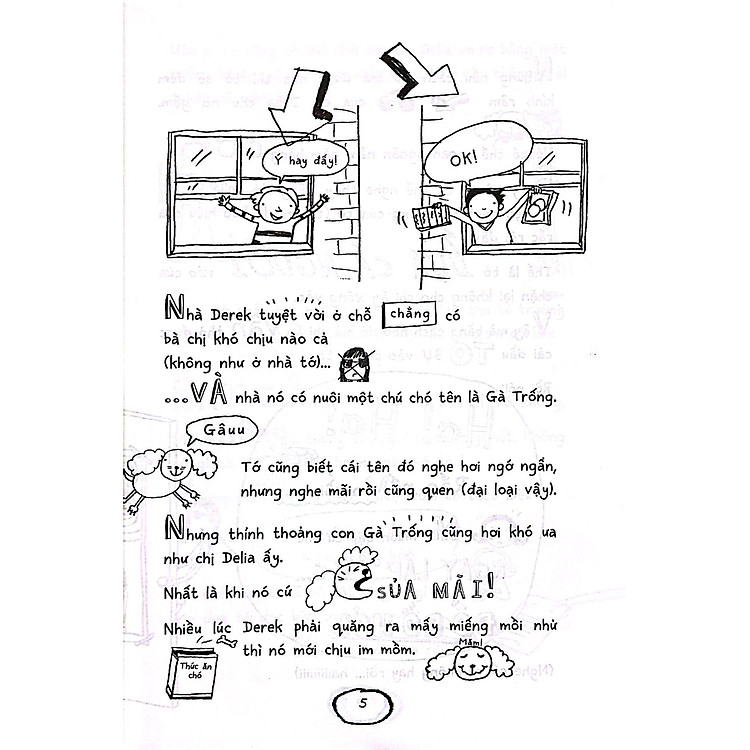 Ý hay đấy!
OK!
Nhà Derek tuyệt vời ở chỗ chẳng có
bà chị khó chịu nào cả
(không như ở nhà tớ)...
...VÀ nhà nó có nuôi một chú chó tên là Gà Trống.
Gâuu
Tớ cũng biết cái tên đó nghe hơi ngớ ngẩn,
nhưng nghe mãi rồi cũng quen (đại loại vậy).
Nhưng thính thoảng con Gà Trống cũng hơi khó ưa
như chị Delia ấy.
Nhất là khi nó cứ SỦA MÃI!
Nhiều lúc Derek phải quăng ra mấy miếng mồi nhử
thì nó mới chịu im mồm.
Măm!
Thức ăn
chó
5